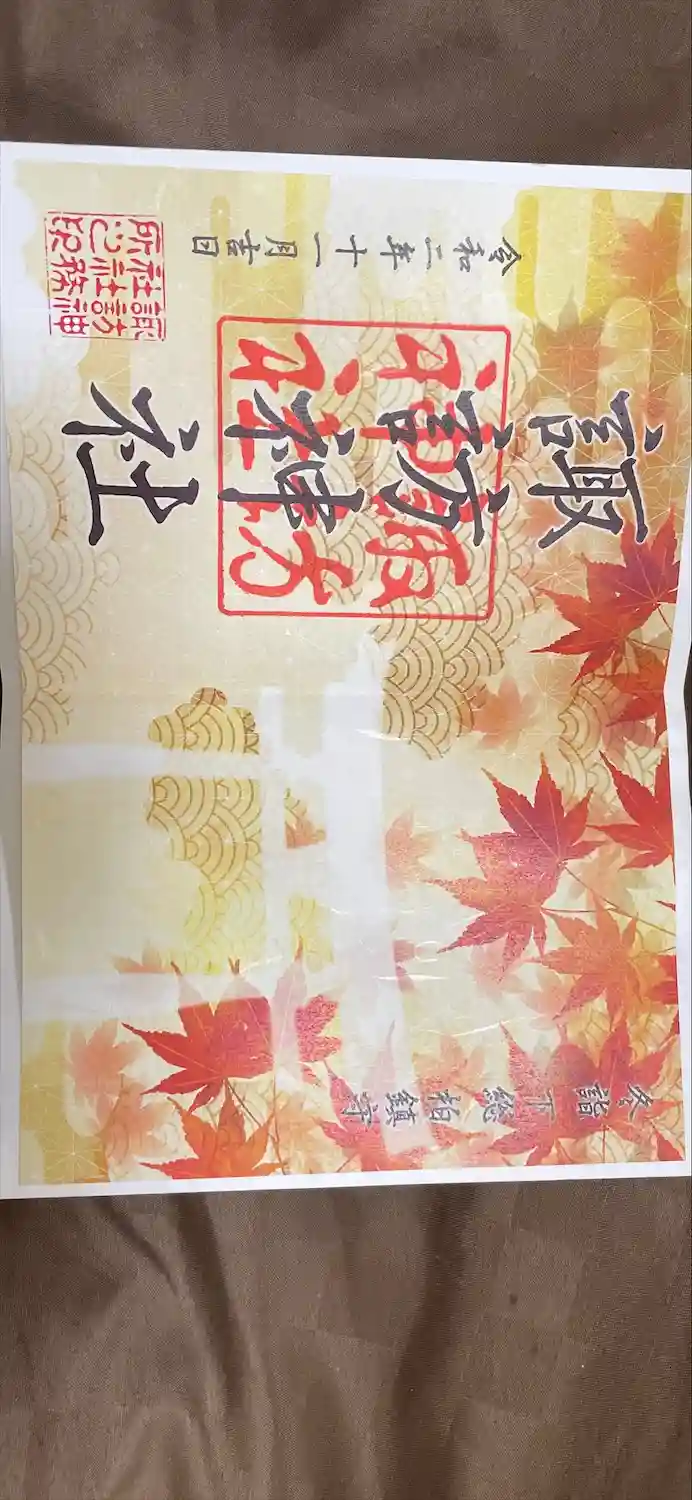 参詣 下総 柏鎮守
諏訪神社
諏訪
神社
令和二年十一月吉日
諏訪神
社社務
所之印